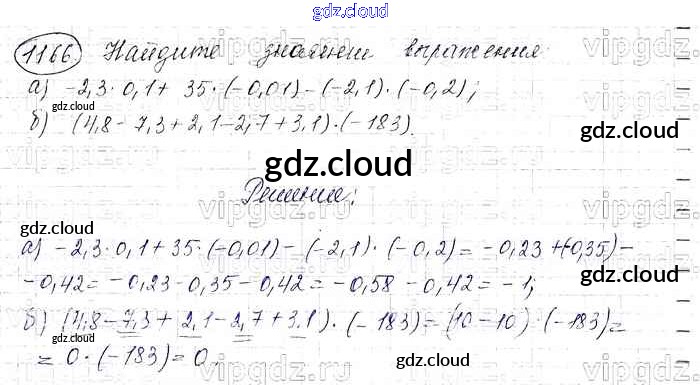 gdz.cloud
1166 Найдите значение выражения
а) -2,3·0,1+ 35·(-0,01)-(-2,1)·(-0,2);
gdz.cloud
б) (4,8-7,3+2,1-2,7+3,1)·(-183).
gdz.cloud
gdz.cloud
Решение:
gdz.cloud
а) -2,3·0,1+35·(-0,01)-(-2,1)·(-0,2)= -0,23+(-0,35)-
gdz.cloud
-0,42=-0,23-0,35-0,42=-0,58-0,42=-1;
gdz.cloud
б) (4,8-7,3+2,1-2,7+3,1)·(-183)=(10-10)·(-183)=
=0·(-183)=0
gdz.cloud
gdz.cloud